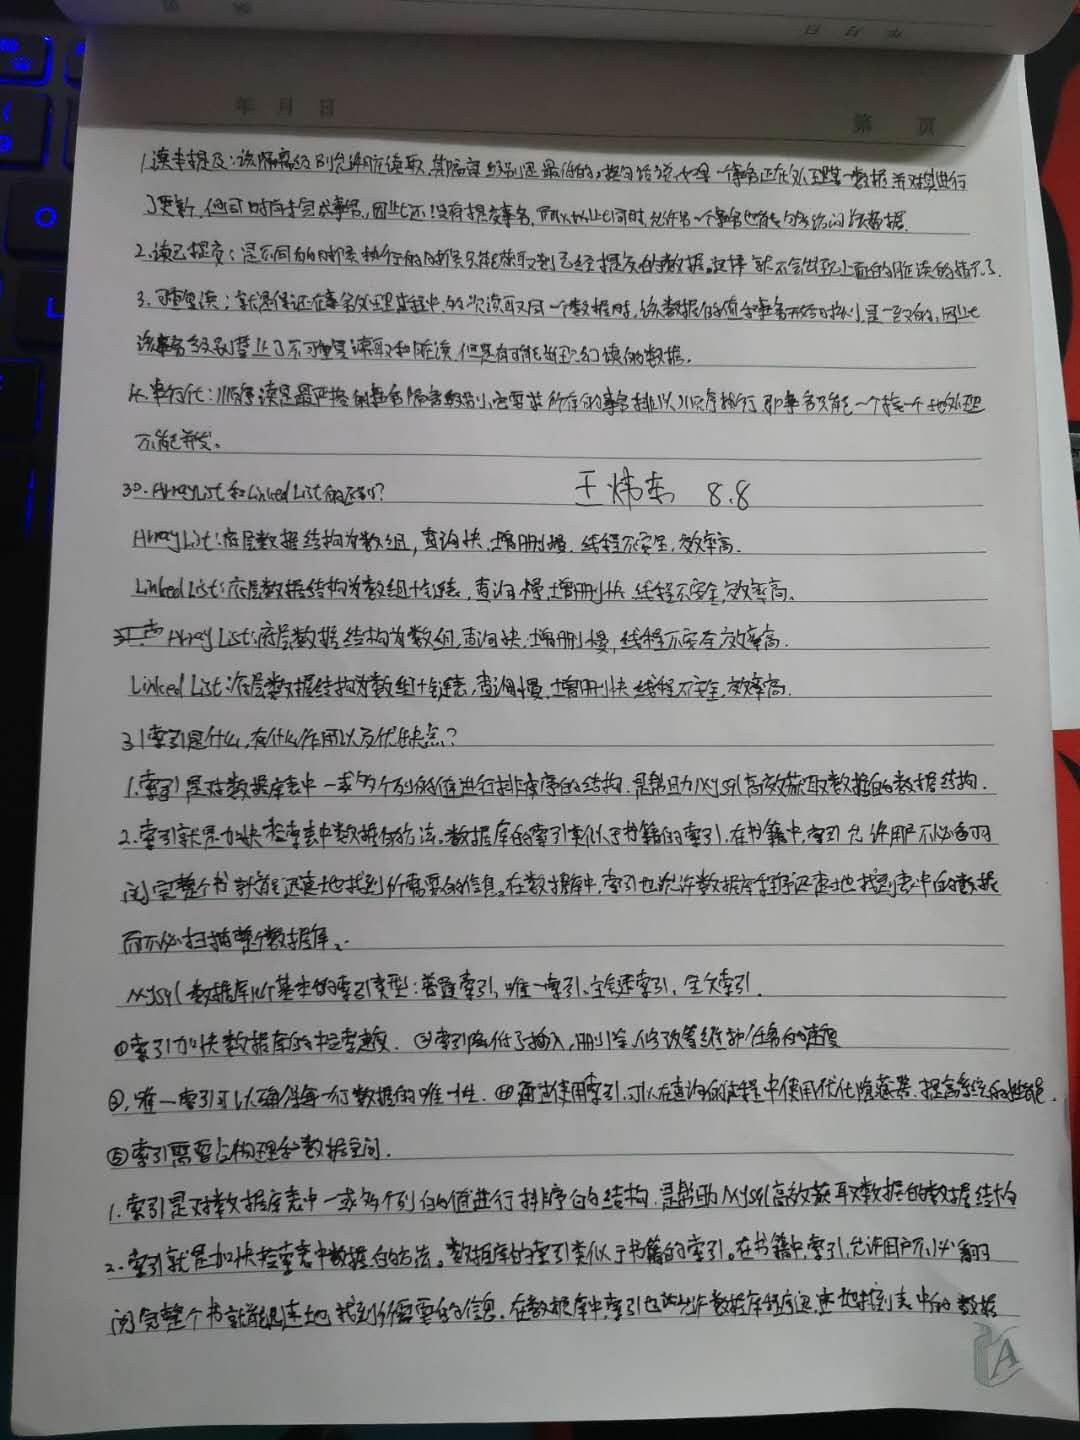 年 月 日
第 页
1.读未提及:该隔离级别允许脏读取,其隔离级别是最低的。换句话说,如果一个事务正在处理某一数据,并对其进行
了更新,但同时尚未完成事务,因此还没有提交事务,而以此同时,允许另一个事务也能够访问该数据.
2.读已提交:是不同的事务执行的时候只能获取到已经提交的数据。这样就不会出现上面的脏读的情况了.
3.可重复读:就是保证在事务处理过程中,多次读取同一个数据时,该数据的值和事务开始时刻是一致的,因此
该事务级别禁止了不可重复读取和脏读,但是有可能出现幻读的数据.
4.串行化:顺序读是最严格的事务隔离级别,它要求所有的事务排队顺序执行,即事务只能一个接一个地处理
不能并发.
30.ArrayList和LinkedList的区别?
王炜东 8.8
ArrayList:底层数据结构为数组,查询快,增删慢,线程不安全,效率高.
LinkedList:底层数据结构为数组+链表,查询慢,增删快,线程不安全,效率高.
ArrayList:底层数据结构为数组,查询快,增删慢,线程不安全,效率高.
LinkedList:底层数据结构为数组+链表,查询慢,增删快,线程不安全,效率高.
31索引是什么,有什么作用以及优缺点?
1.索引是对数据库表中一或多个列的值进行排序的结构,是帮助Mysql高效获取数据的数据结构.
2.索引就是加快检索表中数据的方法。数据库的索引类似于书籍的索引,在书籍中,索引允许用户不必翻
阅完整个书就能迅速地找到所需要的信息。在数据库中,索引也允许数据库程序迅速地找到表中的数据
而不必扫描整个数据库.
Mysql数据库几个基本的索引类型:普通索引,唯一索引,主键索引,全文索引.
①索引加快数据库的检索速度. ②索引降低了插入,删除,修改等维护任务的速度
③,唯一索引可以确保每一行数据的唯一性. ④通过使用索引,可以在查询的过程中使用优化隐藏器,提高系统的性能.
⑤索引需要占物理和数据空间.
1.索引是对数据库表中一或多个列的值进行排序的结构,是帮助Mysql高效获取数据的数据结构
2.索引就是加快检索表中数据的方法。数据库的索引类似于书籍的索引。在书籍中,索引允许用户不必翻
阅完整个书就能迅速地找到所需要的信息.在数据库中,索引也允许数据库程序迅速地找到表中的数据